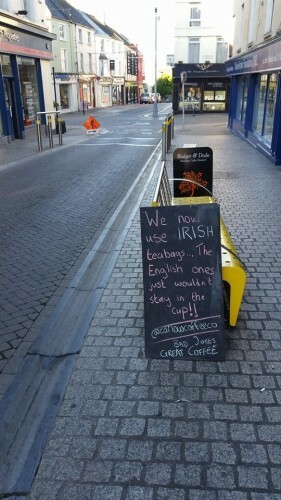 Badger & Dodo
We now
use IRISH
teabags... The
English ones
just wouldn't
stay in the
cup!!
BAD JOKES
GREAT COFFEE